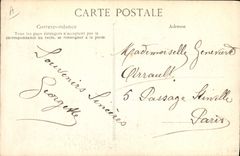 CARTE POSTALE
Correspondance
Tous les pays étrangers n'acceptent pas la
correspondance au recto, se renseigner à la poste
Adresse
Souvenirs Sincères
Georgette
Mademoiselle Geneviève
Arrault
5 Passage Stinville
Paris